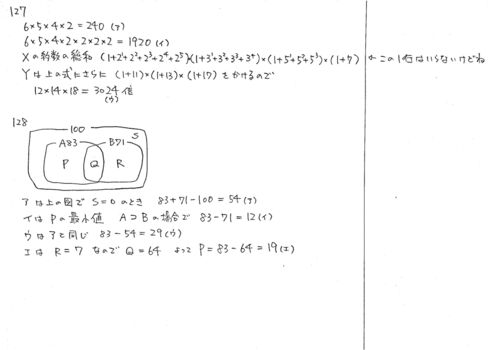 127
6×5×4×2=240 (ア)
6×5×4×2×2×2×2=1920 (イ)
Xの約数の総和 (1+2¹+2²+2³+2⁴+2⁵)(1+3¹+3²+3³+3⁴)×(1+5¹+5²+5³)×(1+7) ←この1行はいらないけどね
Yは上の式にさらに (1+11)×(1+13)×(1+17) をかけるので
12×14×18=3024倍
(ウ)
128
100
S
A83
B71
P
Q
R
アは上の図で S=0のとき 83+71-100=54(ア)
イは Pの最小値 A⊃Bの場合で 83-71=12(イ)
ウはアと同じ 83-54=29(ウ)
エは R=7 なので Q=64 よって P=83-64=19(エ)